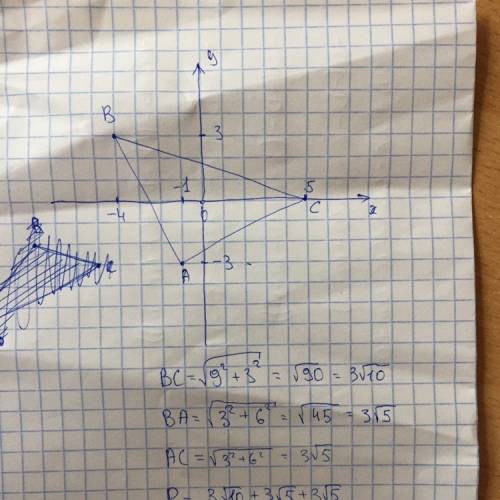 y
B
3
-1
5
-4
0
C
x
A
-3
BC = √(9² + 3²) = √90 = 3√10
BA = √(3² + 6²) = √45 = 3√5
AC = √(3² + 6²) = 3√5
P = 3√10 + 3√5 + 3√5